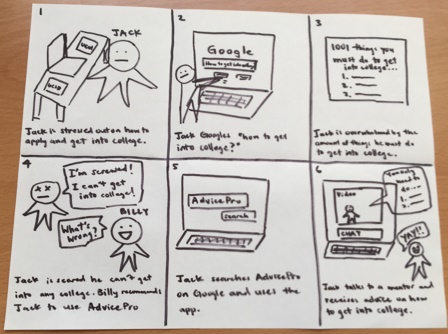 1
JACK
UCLA
UCSD
Jack is stressed out on how to
apply and get into college.
2
Google
How to get into college
Jack Googles "how to get
into college?"
3
1001 things you
must do to get
into college...
1.
2.
3.
Jack is overwhelmed by the
amount of things he must do
to get into college.
4
I'm screwed!
I can't get
into college!
What's
wrong?
BILLY
Jack is scared he can't get
into any college. Billy recommends
Jack to use AdvicePro
5
AdvicePro
search
Jack searches AdvicePro
on Google and uses the
app.
6
Video
CHAT
You only
need to
do...
1.
2.
YAY!!
Jack talks to a mentor and
receives advice on how
to get into college.